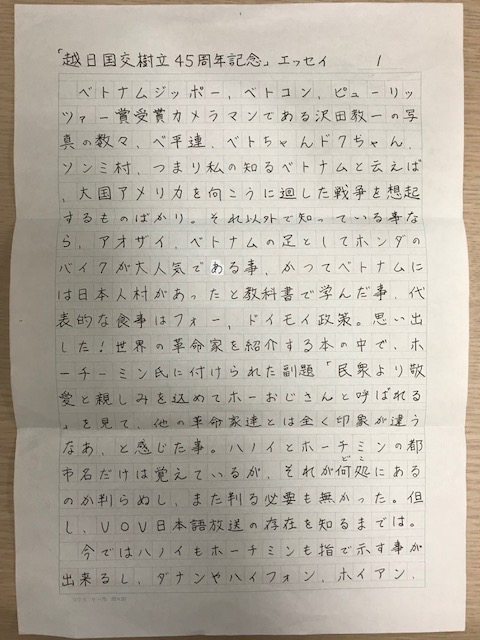 「越日国交樹立45周年記念」エッセイ 1
ベトナムジッポー、ベトコン、ピューリッ
ツァー賞受賞カメラマンである沢田教一の写
真の数々、ベ平連、ベトちゃんドクちゃん、
ソンミ村、つまり私の知るベトナムと云えば
、大国アメリカを向こうに廻した戦争を想起
するものばかり。それ以外で知っている事な
ら、アオザイ、ベトナムの足としてホンダの
バイクが大人気である事、かつてベトナムに
は日本人村があったと教科書で学んだ事、代
表的な食事はフォー、ドイモイ政策。思い出
した！世界の革命家を紹介する本の中で、ホ
ーチーミン氏に付けられた副題「民衆より敬
愛と親しみを込めてホーおじさんと呼ばれる
」を見て、他の革命家達とは全く印象が違う
なあ、と感じた事。ハノイとホーチミンの都
市名だけは覚えているが、それが何処にある
のか判らぬし、また判る必要も無かった。但
し、VOV日本語放送の存在を知るまでは。
今ではハノイもホーチミンも指で示す事が
出来るし、ダナンやハイフォン、ホイアン、